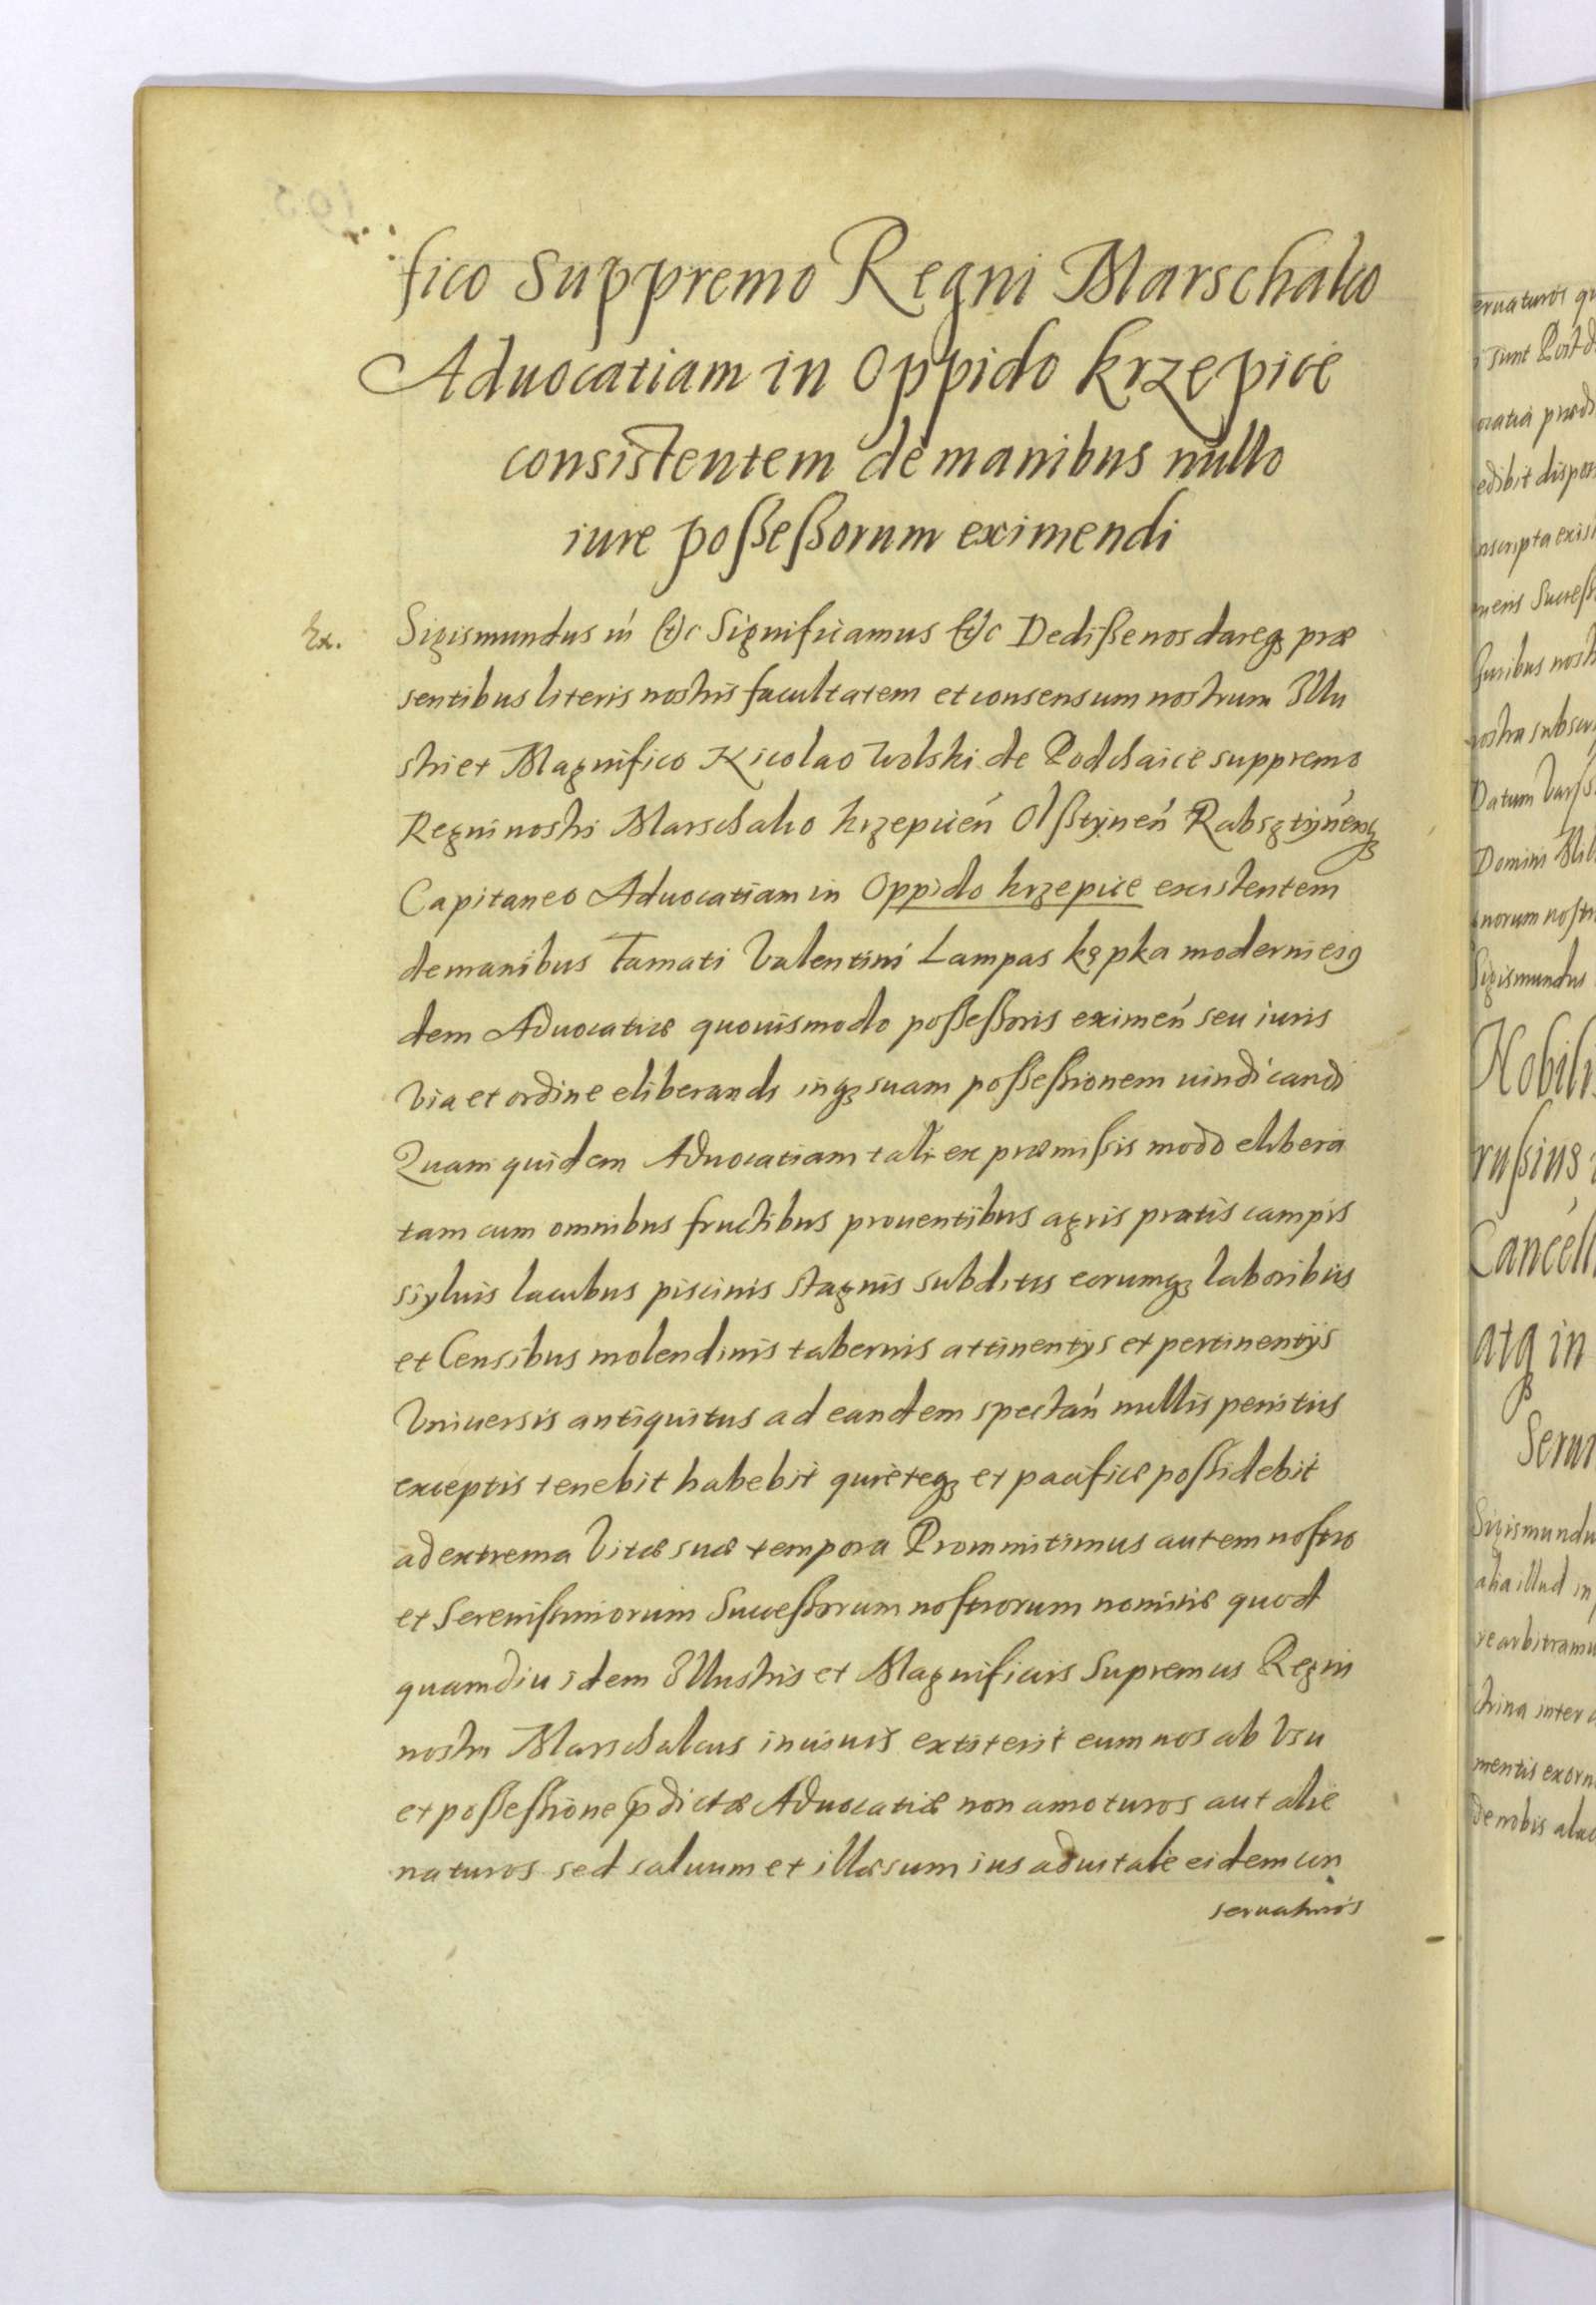 fico Suppremo Regni Marschalco
Aduocatiam in Oppido krzepice
consistentem de manibus nullo
iure poßeßorum eximendi
Ex. Sigismundus iii &c Significamus &c Dediße nos dareq præ
sentibus literis nostris facultatem et consensum nostrum Illu
stri et Magnifico Nicolao Wolski de Podchaice suppremo
Regni nostri Marschalco krzepicen Olßtynen Rabsztynenq
Capitaneo Aduocatiam in Oppido krzepice existentem
de manibus Famati Valentini Lampas kępka moderni eius
dem Aduocatiæ quouismodo poßeßoris eximen seu iuris
via et ordine eliberandi inq suam poßeßionem uindicandi
Quam quidem Aduocatiam tali ex præmißis modo elibera
tam cum omnibus fructibus prouentibus agris pratis campis
syluis lacubus piscinis stagnis subditis eorumq laboribus
et Censibus molendinis tabernis attinentijs et pertinentijs
Vniuersis antiquitus ad eandem spectan nullis penitus
exceptis tenebit habebit quieteq et pacifice poßidebit
ad extrema Vitæ suæ tempora Prommitimus autem nostro
et Serenißimorum Succeßorum nostrorum nomine quod
quamdiu idem Illustris et Magnificus Supremus Regni
nostri Marschalcus in uiuis extiterit eum nos ab Vsu
et poßeßione pdictæ Aduocatiæ non amoturos aut alie
naturos sed saluum et illæsum ius aduitale eidem con
seruaturos